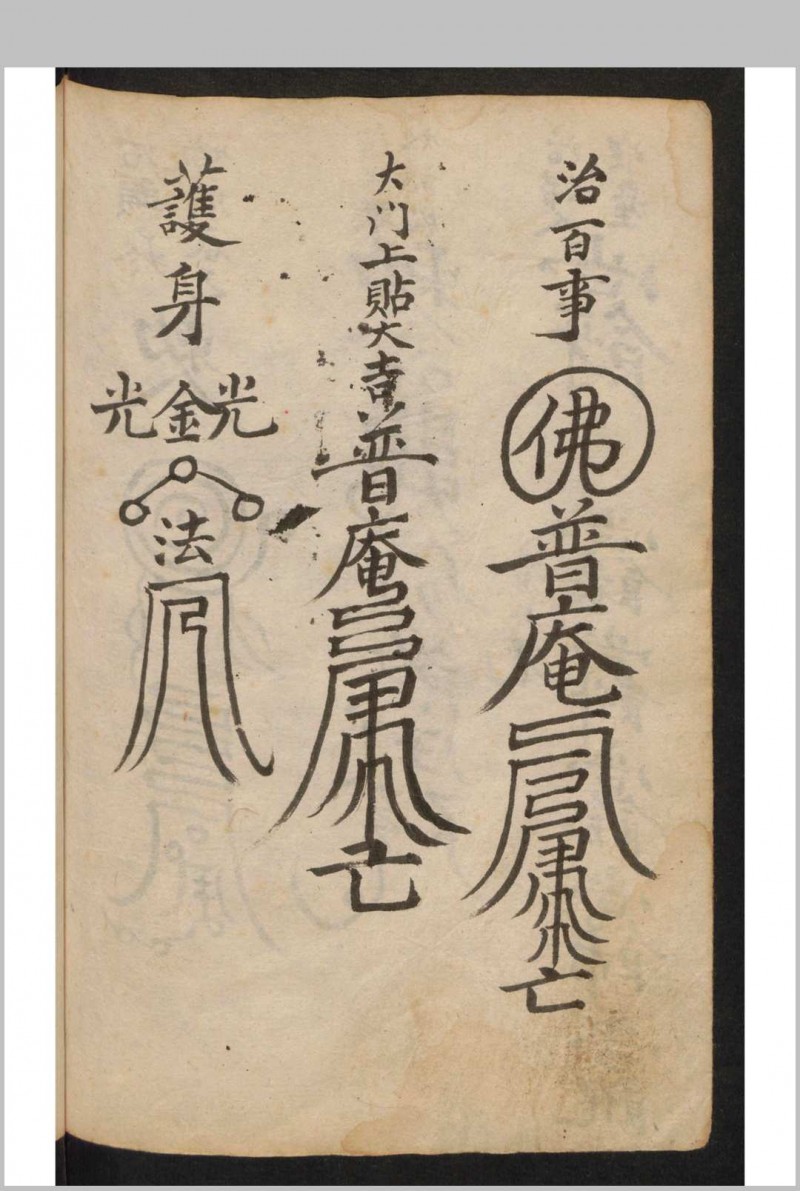 治百事 佛 普庵
大门上贴大吉 普庵
護身 光金光 法